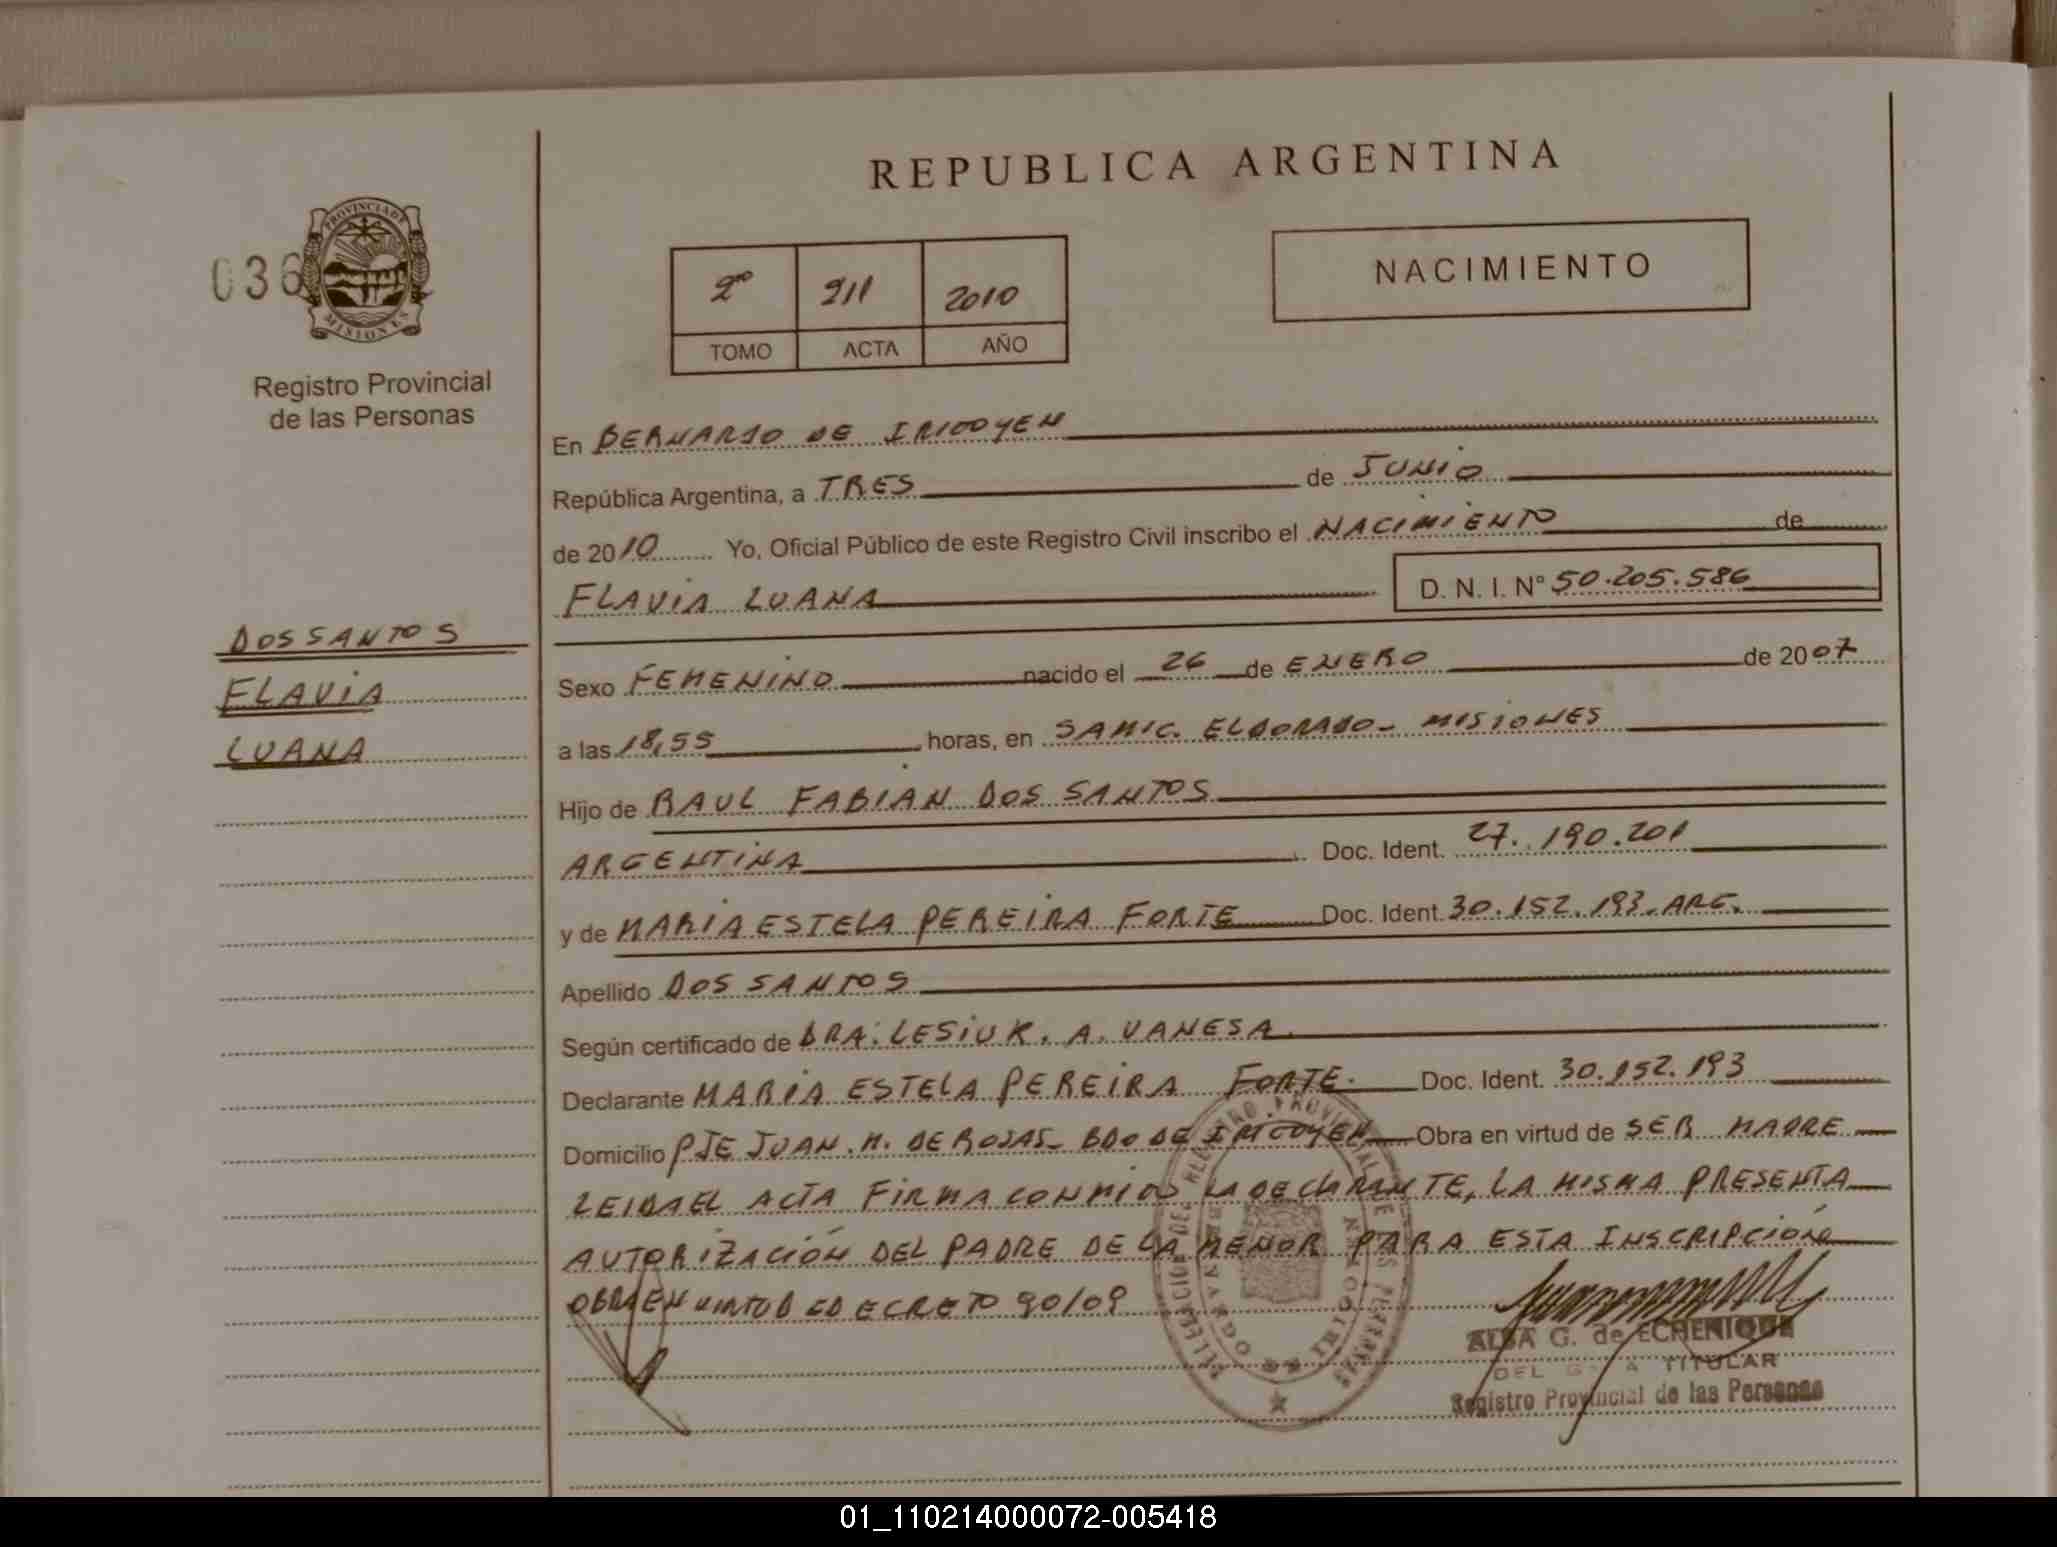 REPUBLICA ARGENTINA
036
PROVINCIA DE
MISIONES
Registro Provincial
de las Personas
2º 211 2010
TOMO ACTA AÑO
NACIMIENTO
En BERNARDO DE IRIGOYEN
República Argentina, a TRES de JUNIO
de 2010 Yo, Oficial Público de este Registro Civil inscribo el NACIMIENTO de
FLAVIA LUANA D. N. I. Nº 50.205.586
DOS SANTOS
FLAVIA
LUANA
Sexo FEMENINO nacido el 26 de ENERO de 2007
a las 18,55 horas, en SAMIC. ELDORADO - MISIONES
Hijo de RAUL FABIAN DOS SANTOS
ARGENTINA Doc. Ident. 27.190.201
y de MARIA ESTELA PEREIRA FORTE Doc. Ident. 30.152.193. ARG.
Apellido DOS SANTOS
Según certificado de DRA. LESIUK. A. VANESA
Declarante MARIA ESTELA PEREIRA FORTE. Doc. Ident. 30.152.193
Domicilio PJE JUAN. M. DE ROSAS - BDO DE IRIGOYEN Obra en virtud de SER MADRE
LEIDA EL ACTA FIRMA CONMIGO LA DECLARANTE, LA MISMA PRESENTA
AUTORIZACIÓN DEL PADRE DE LA MENOR PARA ESTA INSCRIPCIÓN
OBRA EN VIRTUD DECRETO 90/09
ALBA G. de ECHENIQUE
TITULAR
Registro Provincial de las Personas
01_110214000072-005418